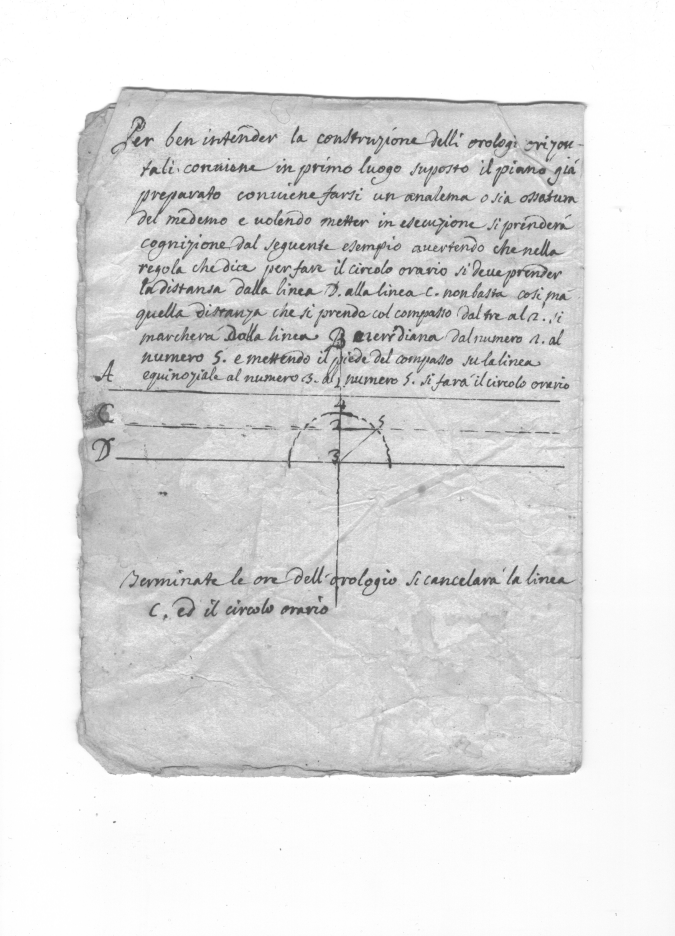 Per ben intender la construzione delli orologi orizon-
tali conviene in primo luogo suposto il piano già
preparato conviene farsi un analema o sia ossatura
del medemo e volendo metter in esecuzione si prenderà
cognizione dal seguente esempio avertendo che nella
regola che dice per fare il circolo orario si deve prender
la distansa dalla linea D. alla linea C. non basta cosi mà
quella distanza che si prende col compasso dal tre al 2. si
marcherà Dalla linea B meridiana dal numero 2. al
numero 5. e mettendo il piede del compasso su la linea
equinoziale al numero 3. al numero 5. si farà il circolo orario
A
1
4
C 2 5
D 3
Terminate le ore dell'orologio si cancelarà la linea
C, ed il circolo orario